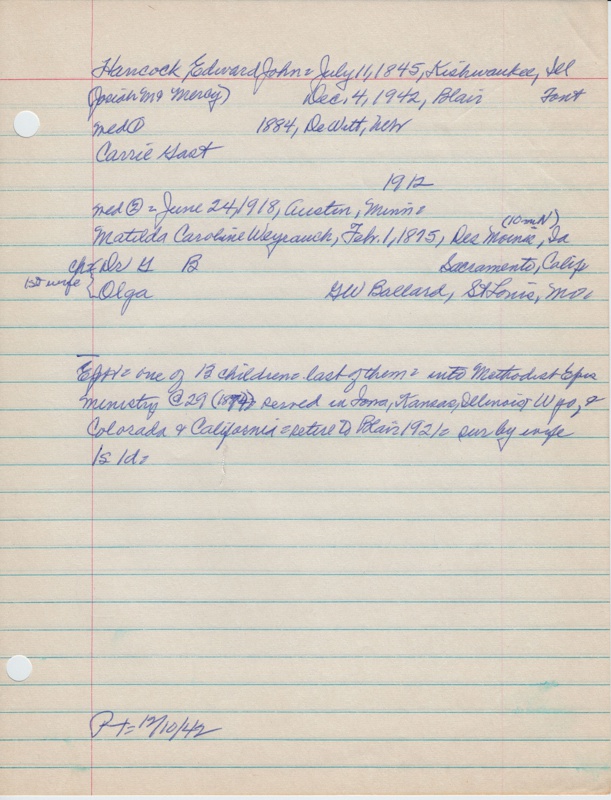 Hancock Edward John = July 11, 1845, Kishwaukee, Ill
(Josiah M & Mercy) Dec. 4, 1942, Blair Font
med ① 1884, DeWitt, Nebr
Carrie Gast
1912
med ② = June 24, 1918, Austin, Minn =
(10 mi N)
Matilda Caroline Weyrauch, Feb. 1, 1875, Des Moines, Ia
Dr G B Sacramento, Calif
1st wife Olga GW Ballard, St Louis, Mo.
EJH = one of 13 children = last of them = into Methodist Epis
ministry @ 29 (1874) served in Iowa, Kansas, Illinois, Wyo, &
Colorado & California = retire to Blair 1921 = sur by wife
1s 1d =
P T = 12/10/42